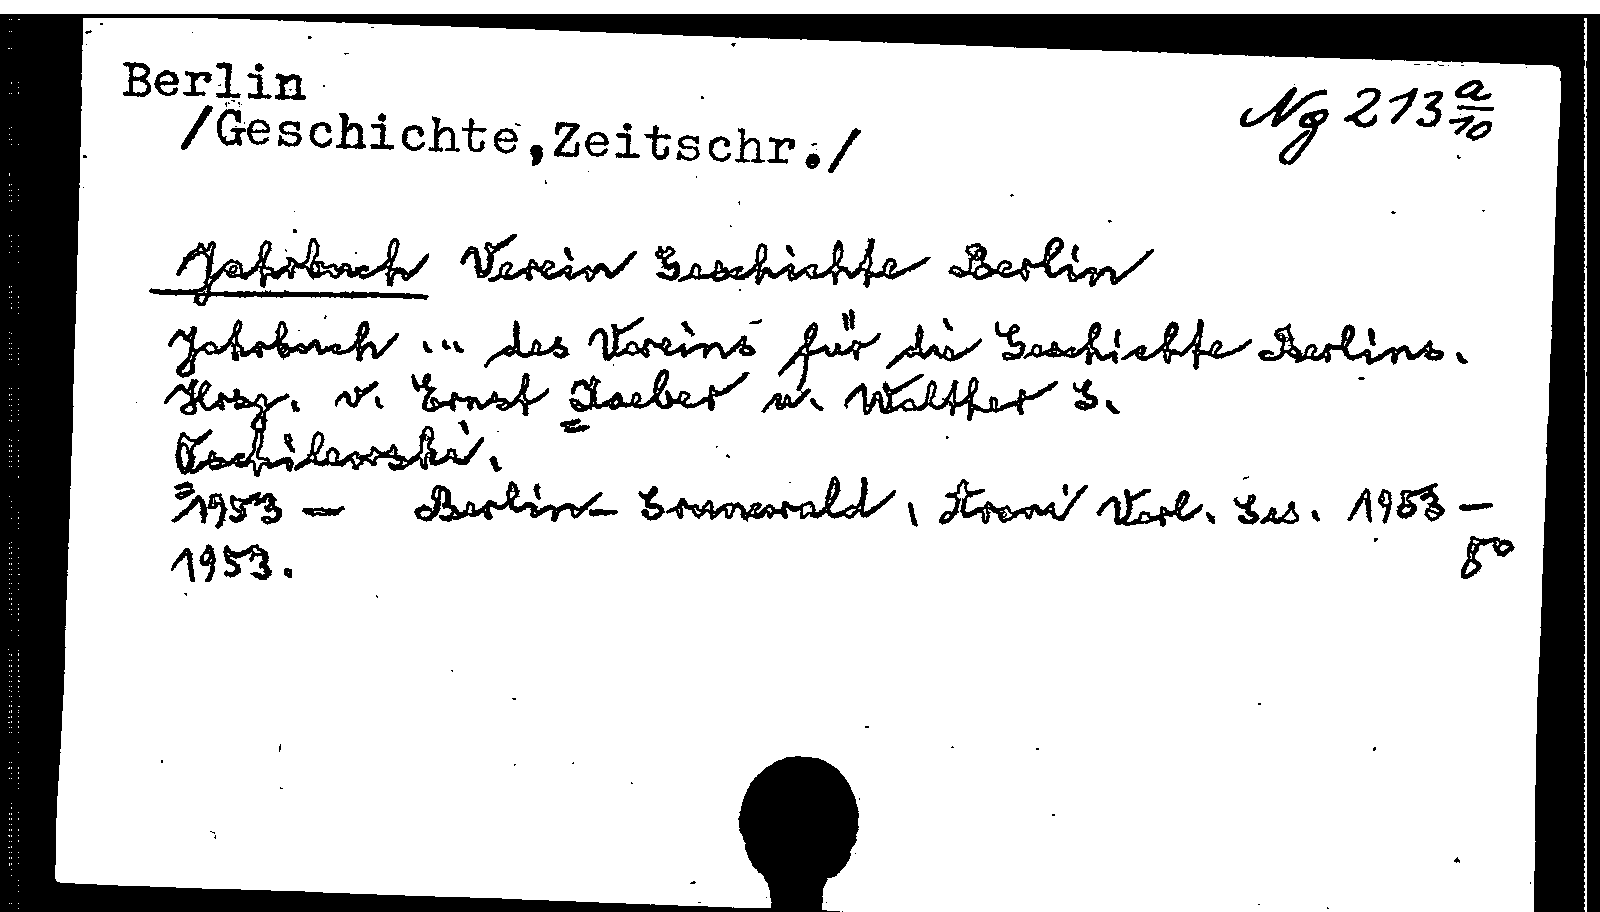 Berlin
/Geschichte,Zeitschr./
Ng 213 a/10
Jahrbuch Verein Geschichte Berlin
Jahrbuch ... des Vereins für die Geschichte Berlins.
Hrsg. v. Ernst Kaeber u. Walther G.
Oschilewski.
1953 — Berlin-Grunewald, Arani Verl. Ges. 1953 —
1953. 8°